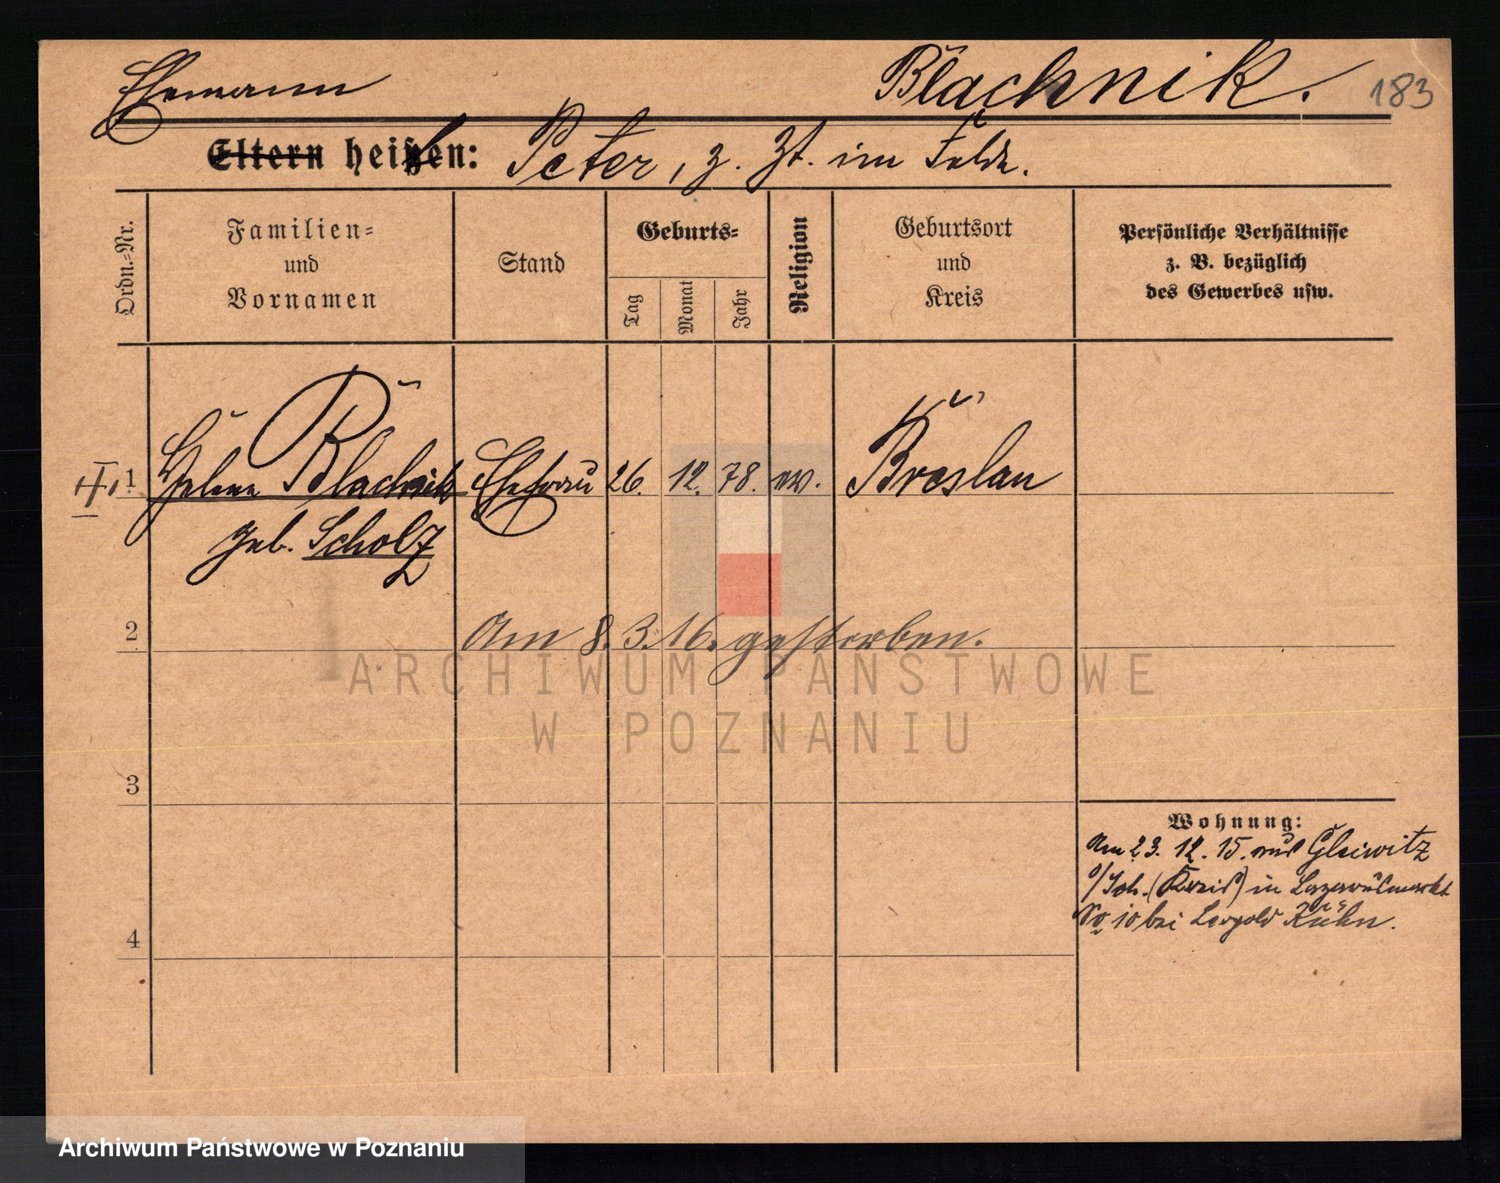 Ehemann
Blachnik.
183
Eltern heißen: Peter, z. Zt. im Felde.
Ordn.-Nr.
Familien-
und
Vornamen
Stand
Geburts-
Tag
Monat
Jahr
Religion
Geburtsort
und
Kreis
Persönliche Verhältnisse
z. B. bezüglich
des Gewerbes usw.
1 Helene Blachnik Ehefrau 26. 12. 78. ev. Breslau
geb. Scholz
2
Am 8. 3. 16. gestorben.
ARCHIWUM PAŃSTWOWE
W POZNANIU
3
Wohnung:
Am 23. 12. 15. aus Gleiwitz
(Kreis) in
No 10 bei Leopold Kühn.
4
Archiwum Państwowe w Poznaniu